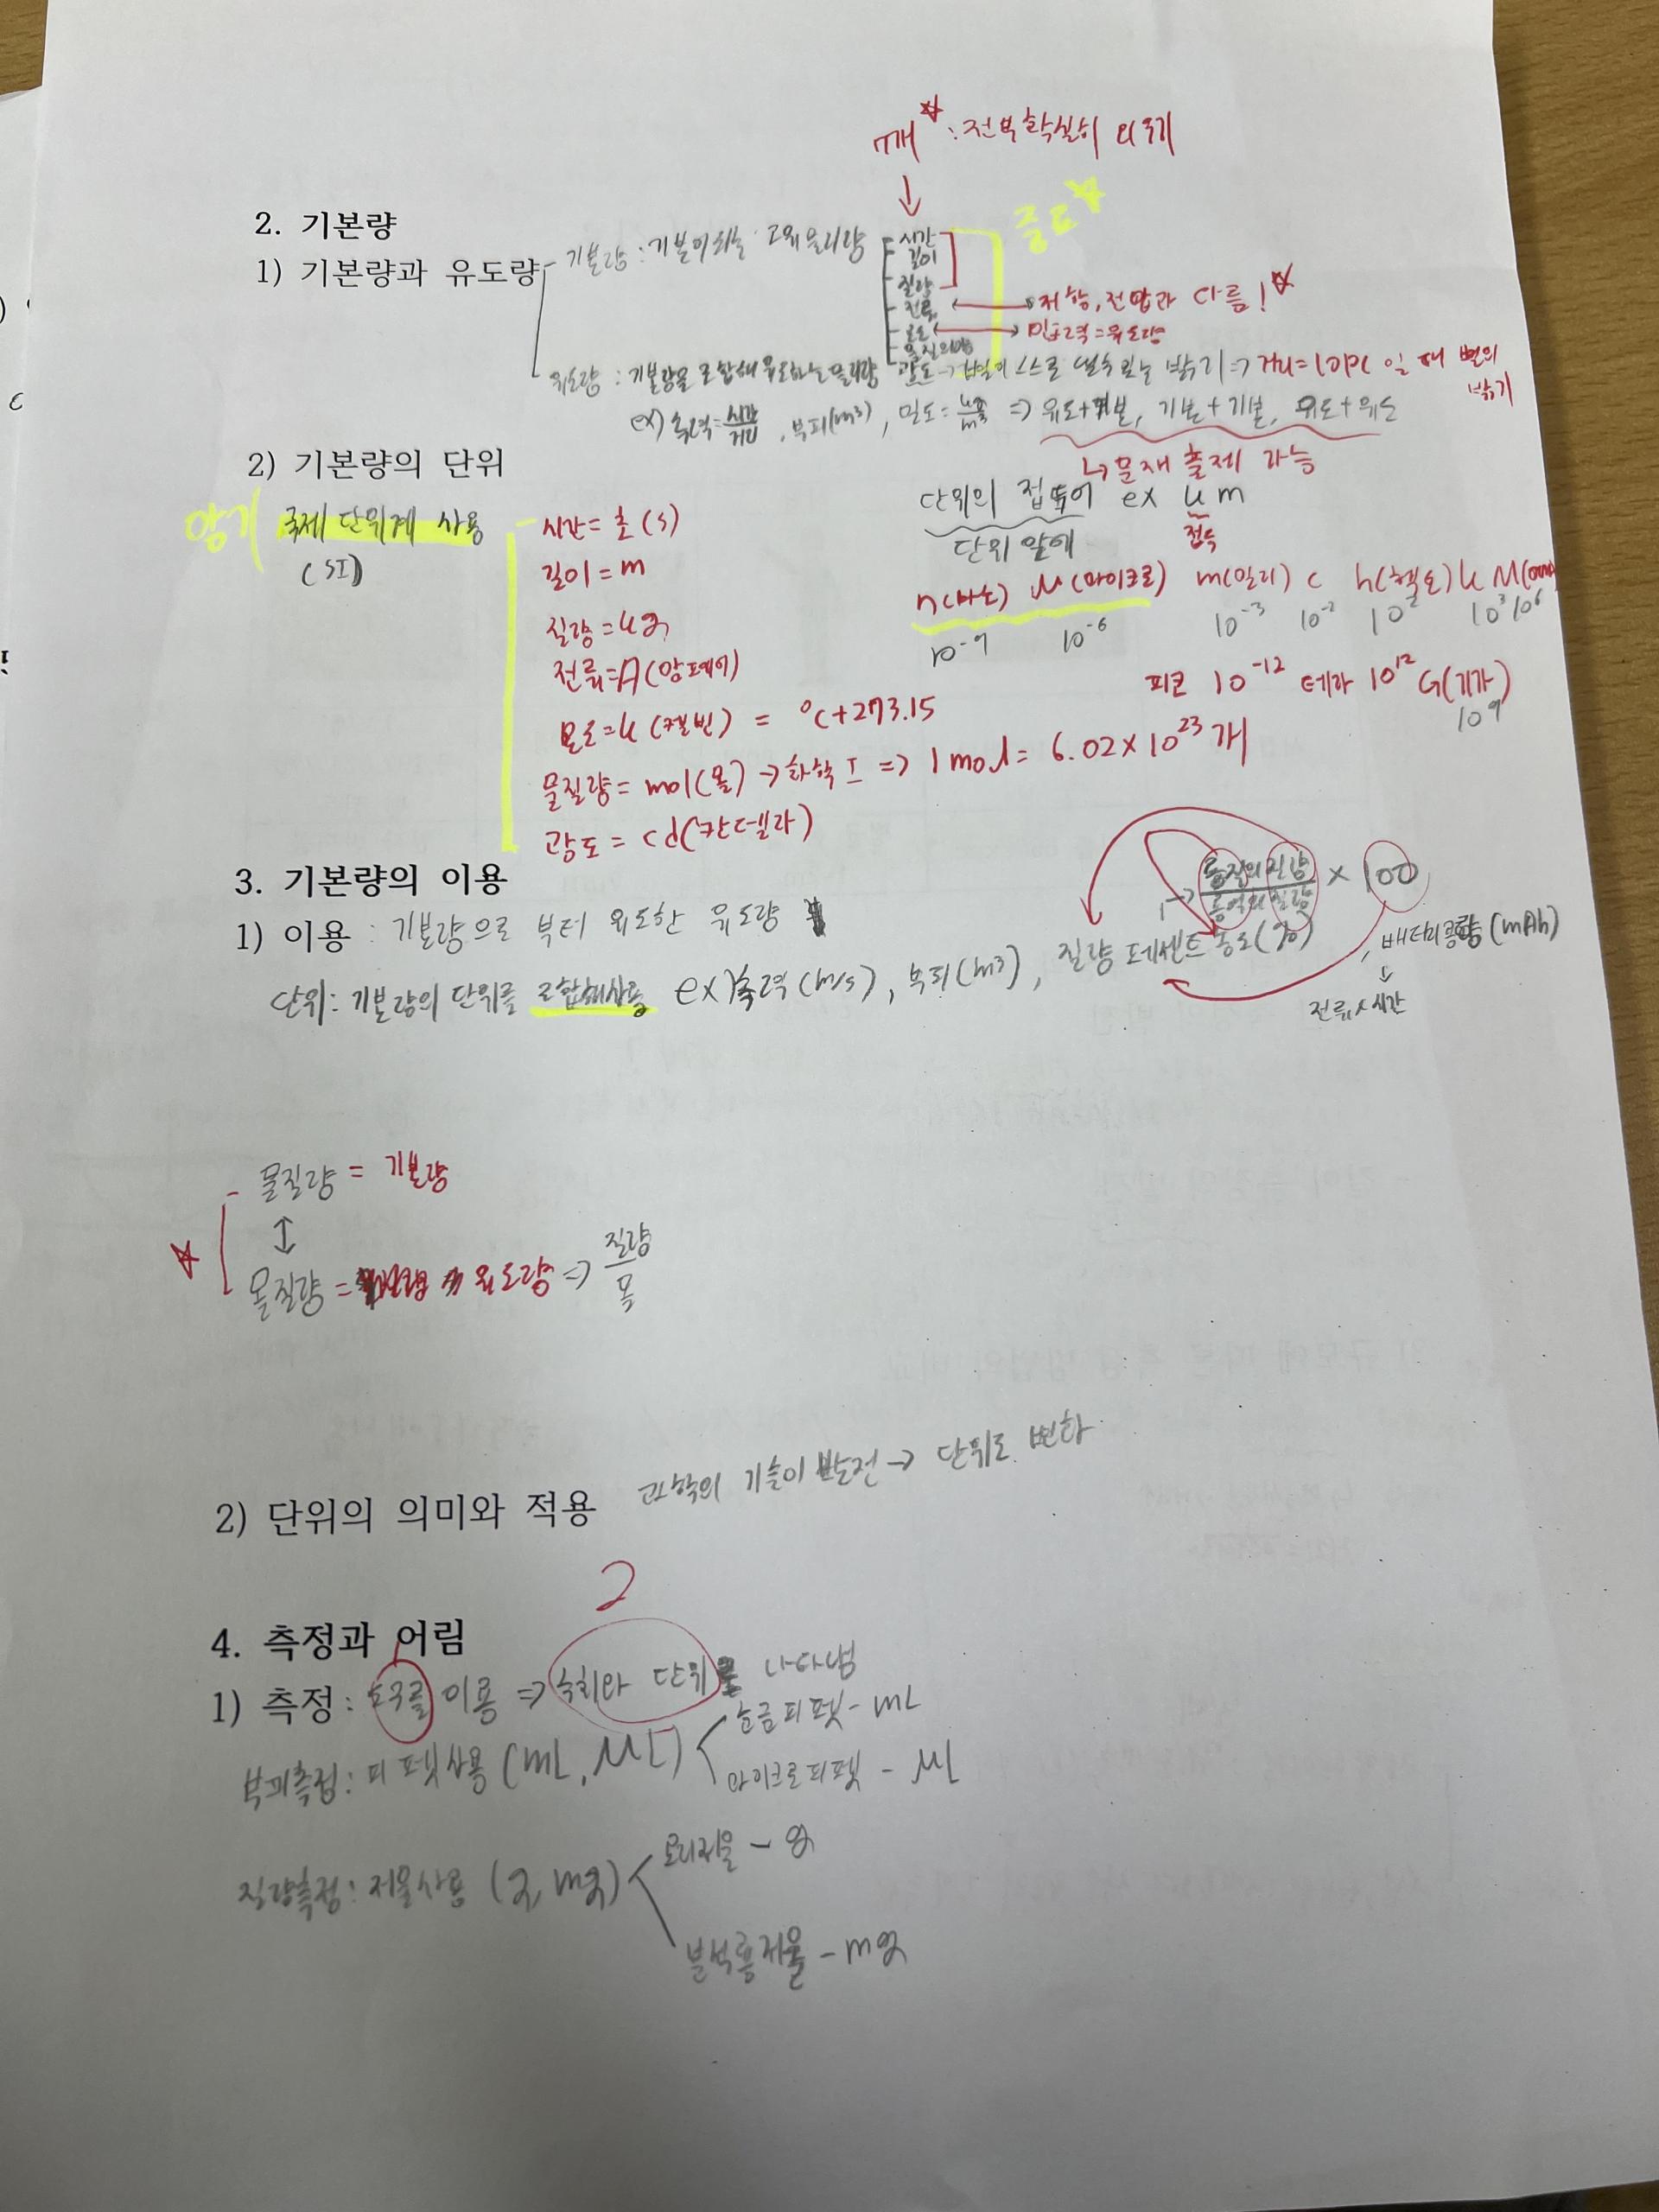 7개☆ : 전부 확실히 외우기
2. 기본량
중요☆
1) 기본량과 유도량
기본량 : 기본이 되는 고유 물리량
시간
길이
질량
전류 ↔ 저항, 전압과 다름!☆
온도 ↔ 압력=유도량
물질의 양
광도
유도량 : 기본량을 조합해 유도하는 물리량
밝기 => 거리=10pc 일 때 별의 밝기
ex) 속력=시간/거리, 부피(m³), 밀도= => 유도+기본, 기본+기본, 유도+유도
↳ 문제 출제 가능
2) 기본량의 단위
암기 국제 단위계 사용
(SI)
시간 = 초 (s)
길이 = m
질량 = kg
전류 = A (암페어)
온도 = k (켈빈) = °C+273.15
물질량 = mol(몰) → 화학 I => 1 mol = 6.02×10²³개
광도 = cd(칸델라)
단위의 접두어 ex km
단위 앞에 접두
n(나노) μ(마이크로) m(밀리) c h(헥토) k M
10⁻⁹ 10⁻⁶ 10⁻³ 10⁻² 10² 10³ 10⁶
피코 10⁻¹² 테라 10¹² G(기가)
10⁹
3. 기본량의 이용
1) 이용 : 기본량으로 부터 유도한 유도량
용질의 질량/용액의 질량 × 100
단위: 기본량의 단위를 조합해사용 ex) 속력(m/s), 부피(m³), 질량 퍼센트 농도(%), 배터리 용량(mAh)
전류×시간
물질량 = 기본량
↕
☆
몰질량 = 유도량 => 질량/몰
2) 단위의 의미와 적용 과학의 기술이 발전 → 단위도 변화
2
4. 측정과 어림
1) 측정 : 도구를 이용 => 수치와 단위를 나타냄
부피측정 : 피펫사용 (mL, μL)
눈금피펫 - mL
마이크로피펫 - μL
질량측정 : 저울사용 (g, mg)
요리저울 - g
분석용저울 - mg